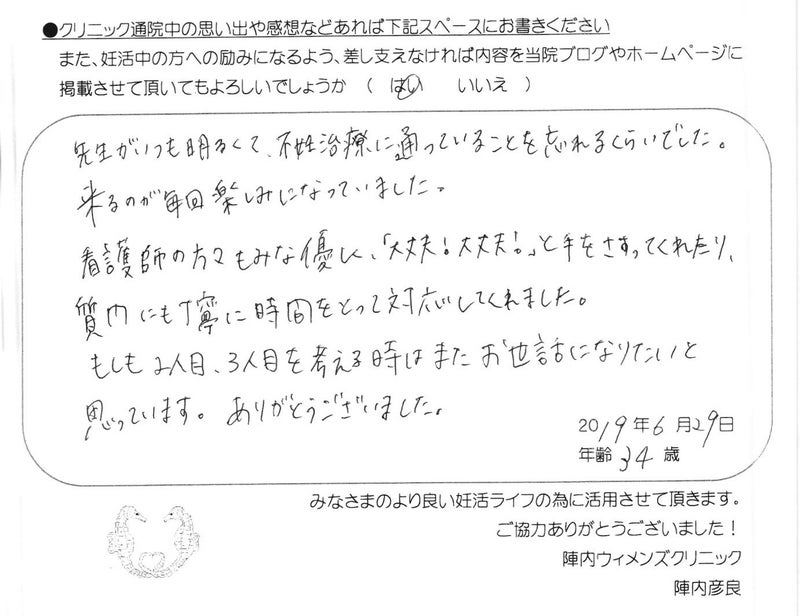 ●クリニック通院中の思い出や感想などあれば下記スペースにお書きください
また、妊活中の方への励みになるよう、差し支えなければ内容を当院ブログやホームページに
掲載させて頂いてもよろしいでしょうか （ はい いいえ ）
先生がいつも明るくて、不妊治療に通っていることを忘れるくらいでした。
来るのが毎回楽しみになっていました。
看護師の方々もみな優しく、「大丈夫！大丈夫！」と手をさすってくれたり、
質問にも丁寧に時間をとって対応してくれました。
もしも2人目、3人目を考える時はまたお世話になりたいと
思っています。ありがとうございました。
2019年6月29日
年齢 34 歳
みなさまのより良い妊活ライフの為に活用させて頂きます。
ご協力ありがとうございました！
陣内ウィメンズクリニック
陣内彦良